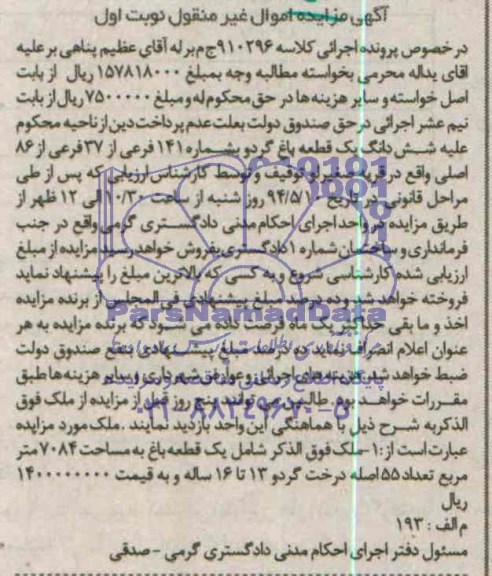 آگهی مزایده اموال غیر منقول نوبت اول
درخصوص پرونده اجرائی کلاسه ۹۱۰۲۹۶ج م برله آقای عظیم پناهی بر علیه
اقای یداله محرمی بخواسته مطالبه وجه بمبلغ ۱۵۷۸۱۸۰۰۰ ریال از بابت
اصل خواسته و سایر هزینه ها در حق محکوم له و مبلغ ۷۵۰۰۰۰۰ ریال از بابت
نیم عشر اجرائی در حق صندوق دولت بعلت عدم پرداخت دین از ناحیه محکوم
علیه شش دانگ یک قطعه باغ گردو بشماره ۱۴۱ فرعی از ۳۷ فرعی از ۸۶
اصلی واقع در قریه صفیرلو توقیف و توسط کارشناس ارزیابی که پس از طی
مراحل قانونی در تاریخ ۹۴/۵/۱۰ روز شنبه از ساعت ۱۰/۳۰ الی ۱۲ ظهر از
طریق مزایده در واحد اجرای احکام مدنی دادگستری گرمی واقع در جنب
فرمانداری و ساختمان شماره ۱ دادگستری بفروش خواهد رسید مزایده از مبلغ
ارزیابی شده کارشناسی شروع و به کسی که بالاترین مبلغ را پیشنهاد نماید
فروخته خواهد شد و ده درصد مبلغ پیشنهادی فی المجلس از برنده مزایده
اخذ و ما بقی حداکثر یک ماه فرصت داده می شود که برنده مزایده به هر
عنوان اعلام انصراف نماید ده درصد مبلغ پیشنهادی بنفع صندوق دولت
ضبط خواهد شد هزینه های اجرائی و عوارض شهرداری و سایر هزینه ها طبق
مقررات خواهد بود. طالبین می توانند پنج روز قبل از مزایده از ملک فوق
الذکر به شرح ذیل با هماهنگی این واحد بازدید نمایند .ملک مورد مزایده
عبارت است از :۱ -ملک فوق الذکر شامل یک قطعه باغ به مساحت ۷۰۸۴ متر
مربع تعداد ۵۵ اصله درخت گردو ۱۳ تا ۱۶ ساله و به قیمت ۱۴۰۰۰۰۰۰۰۰
ریال
م الف : ۱۹۳
مسئول دفتر اجرای احکام مدنی دادگستری گرمی - صدقی
ParsNamadData
پایگاه اطلاع رسانی مناقصه و مزایده
۰۲۱-۸۸۳۴۹۶۷۰-۵